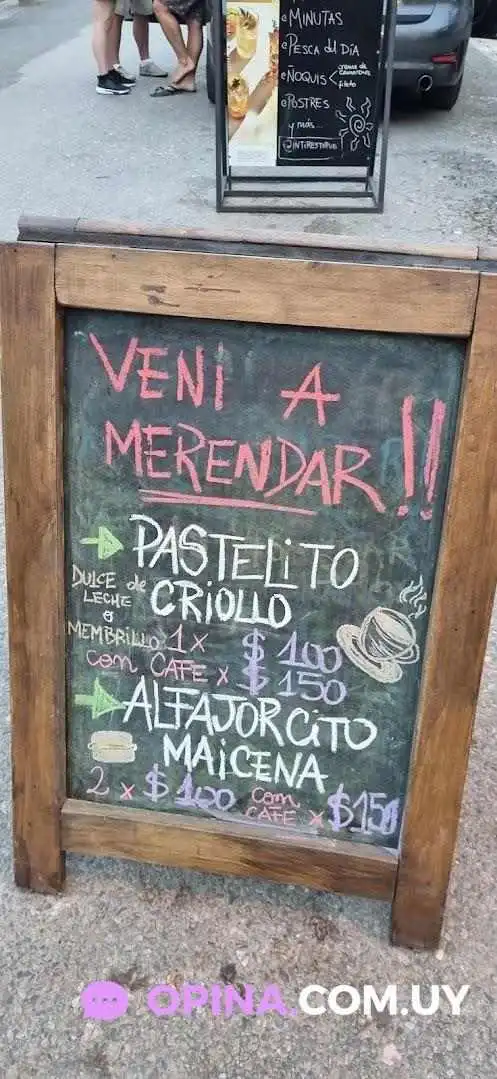 • MINUTAS
• PESCA del DÍA
• ÑOQUIS <
fileto
• POSTRES
y más...
@INTIRESTOPUB
VENI A
MERENDAR!!
→ PASTELITO
CRIOLLO
DULCE de
LECHE
o
MEMBRILLO
1 x $ 100
con CAFE x $ 150
→ ALFAJORCITO
MAICENA
2 x $ 100 con CAFE x $150
OPINA.COM.UY